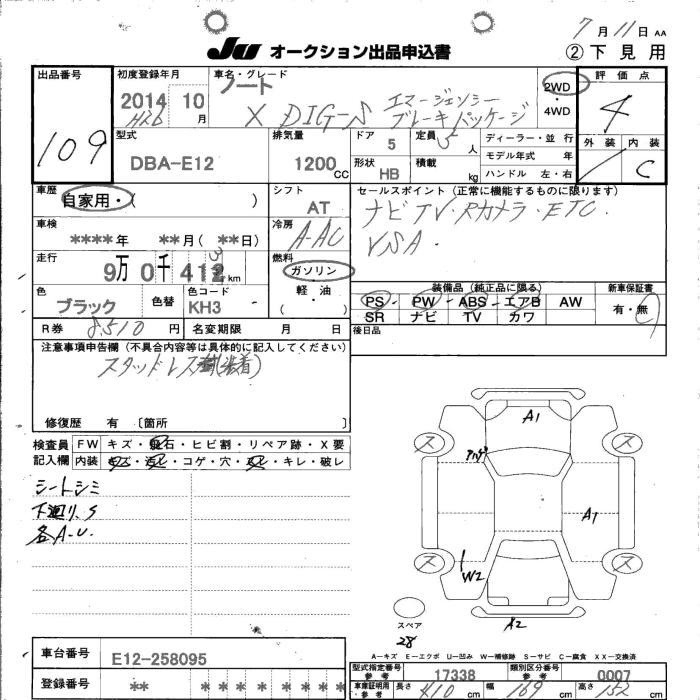 7月11日 AA
JU オークション出品申込書
② 下見用
出品番号
109
初度登録年月
2014年10月
H26
車名・グレード
ノート
X DIG-S エマージェンシー
ブレーキパッケージ
2WD
・
4WD
評価点
4
外装 内装
C
型式
DBA-E12
排気量
1200 CC
ドア
5
定員
5人
形状
HB
積載
kg
ディーラー・並行
モデル年式 年
ハンドル 左・右
車歴
自家用・( )
シフト
AT
セールスポイント (正常に機能するものに限ります)
ナビTV・Rカメラ・ETC.
VSA.
車検
****年 **月(**日)
冷房
A-AC
走行
9万0千412km
3
燃料
ガソリン
軽・油
( )
装備品 (純正品に限る)
PS PW ABS エアB AW
SR ナビ TV カワ
新車保証書
有・無
色
ブラック
色替
色コード
KH3
R券 8510円
名変期限 月 日
後日品
注意事項申告欄 (不具合内容等は具体的に記入してください)
スタッドレス (装着)
修復歴 有 〔箇所 〕
検査員
記入欄
FW キズ・飛石・ヒビ割・リペア跡・X要
内装 キズ・汚レ・コゲ・穴・スレ・キレ・破レ
シートシミ
下廻り、S
各A-U.
A1
ス
ス
A1
W2
ス
ス
スペア
A2
28
A-キズ E-エクボ U-凹み W-補修跡 S-サビ C-腐食 XX-交換済
車台番号
E12-258095
登録番号
** * * * * * * *
型式指定番号
参考
17338
類別区分番号
参考
0007
車庫証明用
参考
長さ 410 cm 幅 169 cm 高さ 152 cm